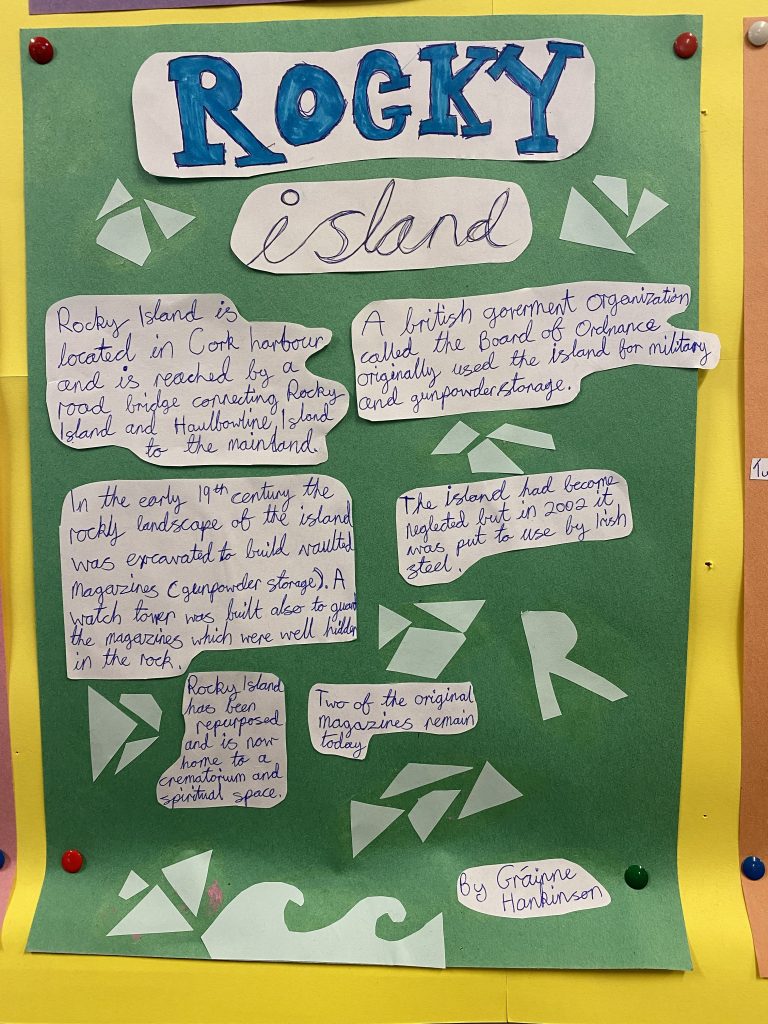 ROCKY
island
Rocky Island is
located in Cork harbour
and is reached by a
road bridge connecting Rocky
Island and Haulbowline Island
to the mainland.
A british goverment organization
called the Board of Ordnance
originally used the island for military
and gunpowder storage.
In the early 19th century the
rocky landscape of the island
was excavated to build vaulted
magazines (gunpowder storage). A
watch tower was built also to guard
the magazines which were well hidden
in the rock.
The island had become
neglected but in 2002 it
was put to use by Irish
steel.
R
Rocky Island
has been
repurposed
and is now
home to a
crematorium and
spiritual space.
Two of the original
magazines remain
today
By Gráinne
Hankinson